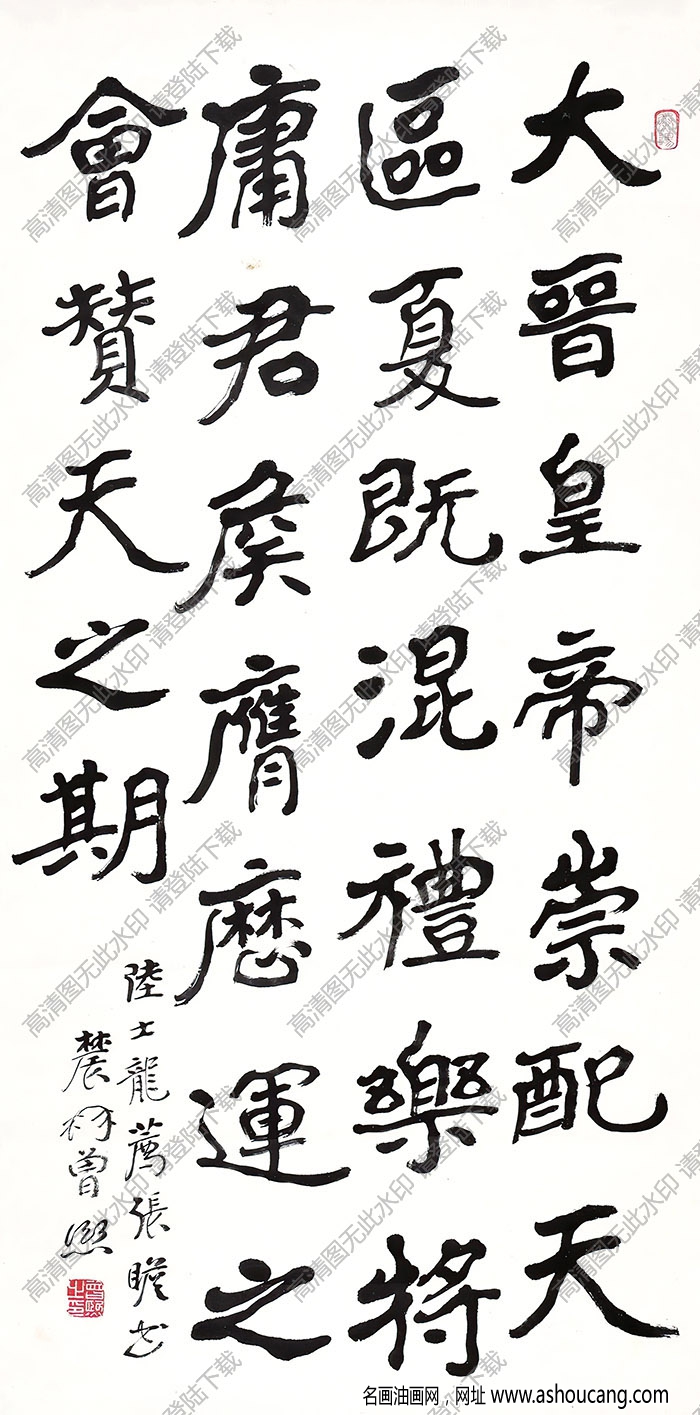 大晉皇帝崇配天
區夏既混禮樂將
庸君侯膺歷運之
會贊天之期
陸士龍薦張瞻書
農髯曾熙
名画油画网，网址 www.ashoucang.com
高清图无此水印 请登陆下载